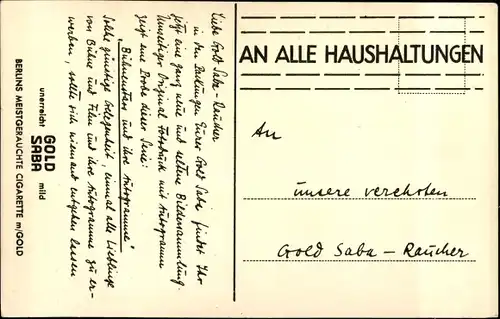 Liebe Gold Saba-Raucher
in den Packungen Eurer Gold Saba findet Ihr
jetzt eine ganz neue und seltene Bildersammlung.
Umseitiger Original Fotodruck mit Autogramm
zeigt eine Probe dieser Serie:
„Bühnenstars und ihre Autogramme"
Solche günstige Gelegenheit, einmal alle Lieblinge
von Bühne und Film und ihre Autogramme zu er-
werben, sollte sich niemand entgehen lassen
unerreicht GOLD SABA mild
BERLINS MEISTGERAUCHTE CIGARETTE m/GOLD
AN ALLE HAUSHALTUNGEN
An
unsere verehrten
Gold Saba-Raucher